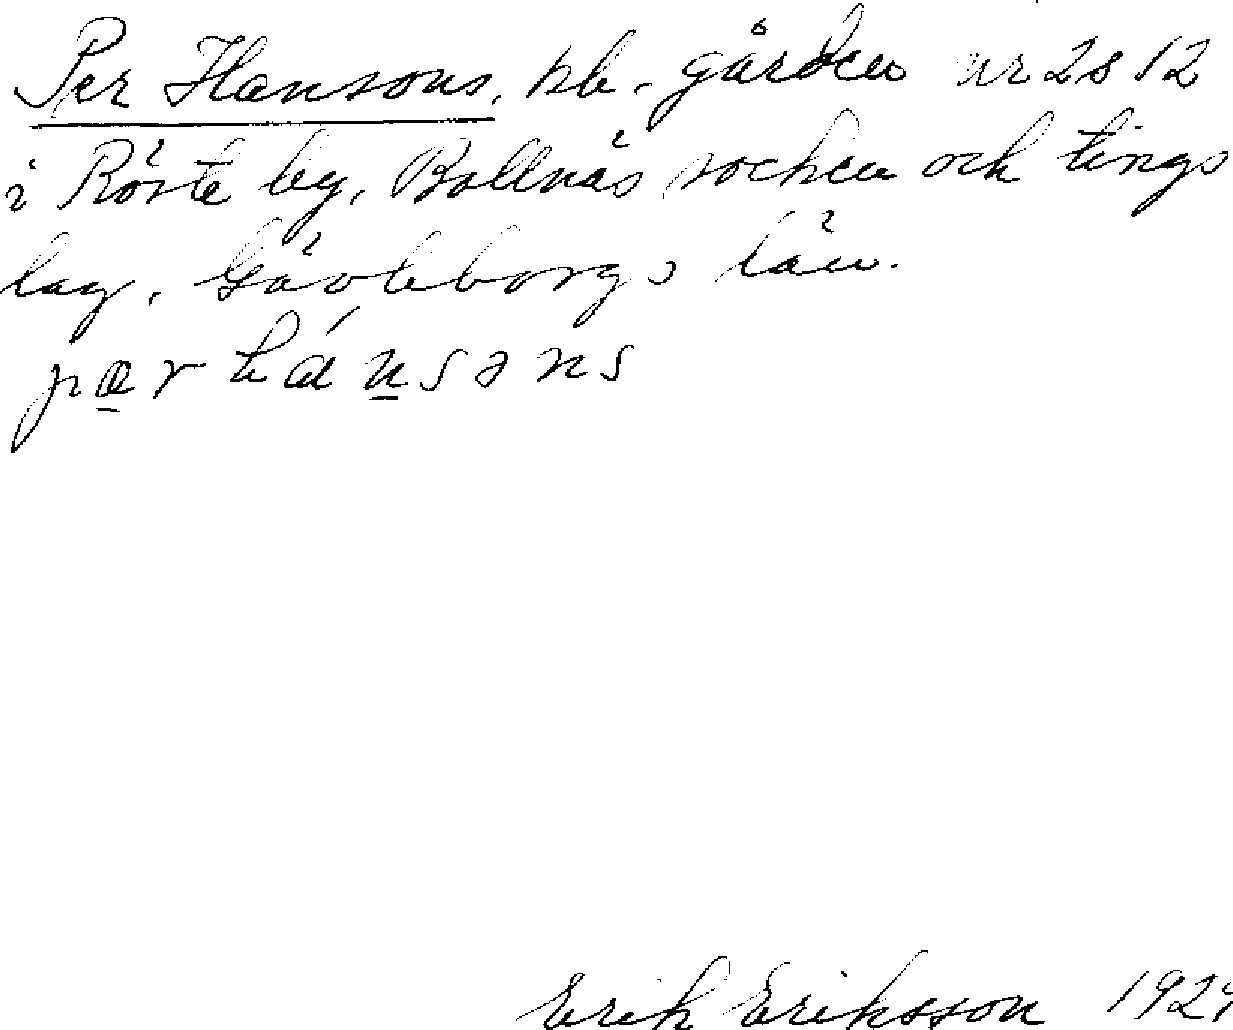 Per Hansons, pb. gården nr 2 o 12
i Röste by, Bollnäs socken och tings
lag, Gävleborgs län.
pær hánsəns
Erik Eriksson 1929